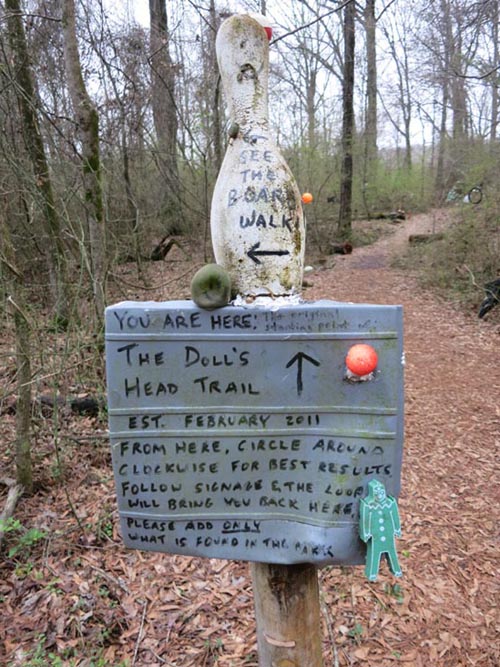 SEE
THE
BOARD
WALK
YOU ARE HERE: The original
starting point of:
THE DOLL'S
HEAD TRAIL
EST. FEBRUARY 2011
FROM HERE, CIRCLE AROUND
CLOCKWISE FOR BEST RESULTS
FOLLOW SIGNAGE & THE LOOP
WILL BRING YOU BACK HERE
PLEASE ADD ONLY
WHAT IS FOUND IN THE PARK